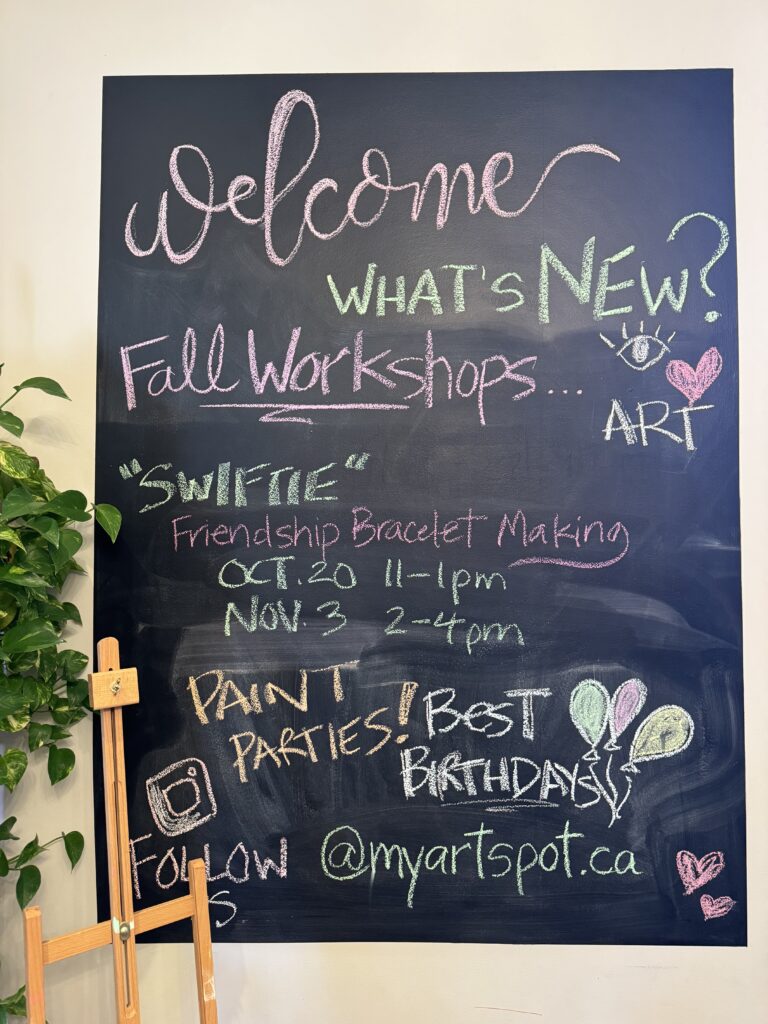 Welcome
WHAT'S NEW?
Fall Workshops...
ART
"SWIFTIE"
Friendship Bracelet Making
OCT. 20 11-1pm
NOV. 3 2-4pm
PAINT
PARTIES!
BEST
BIRTHDAYS
FOLLOW
US
@myartspot.ca